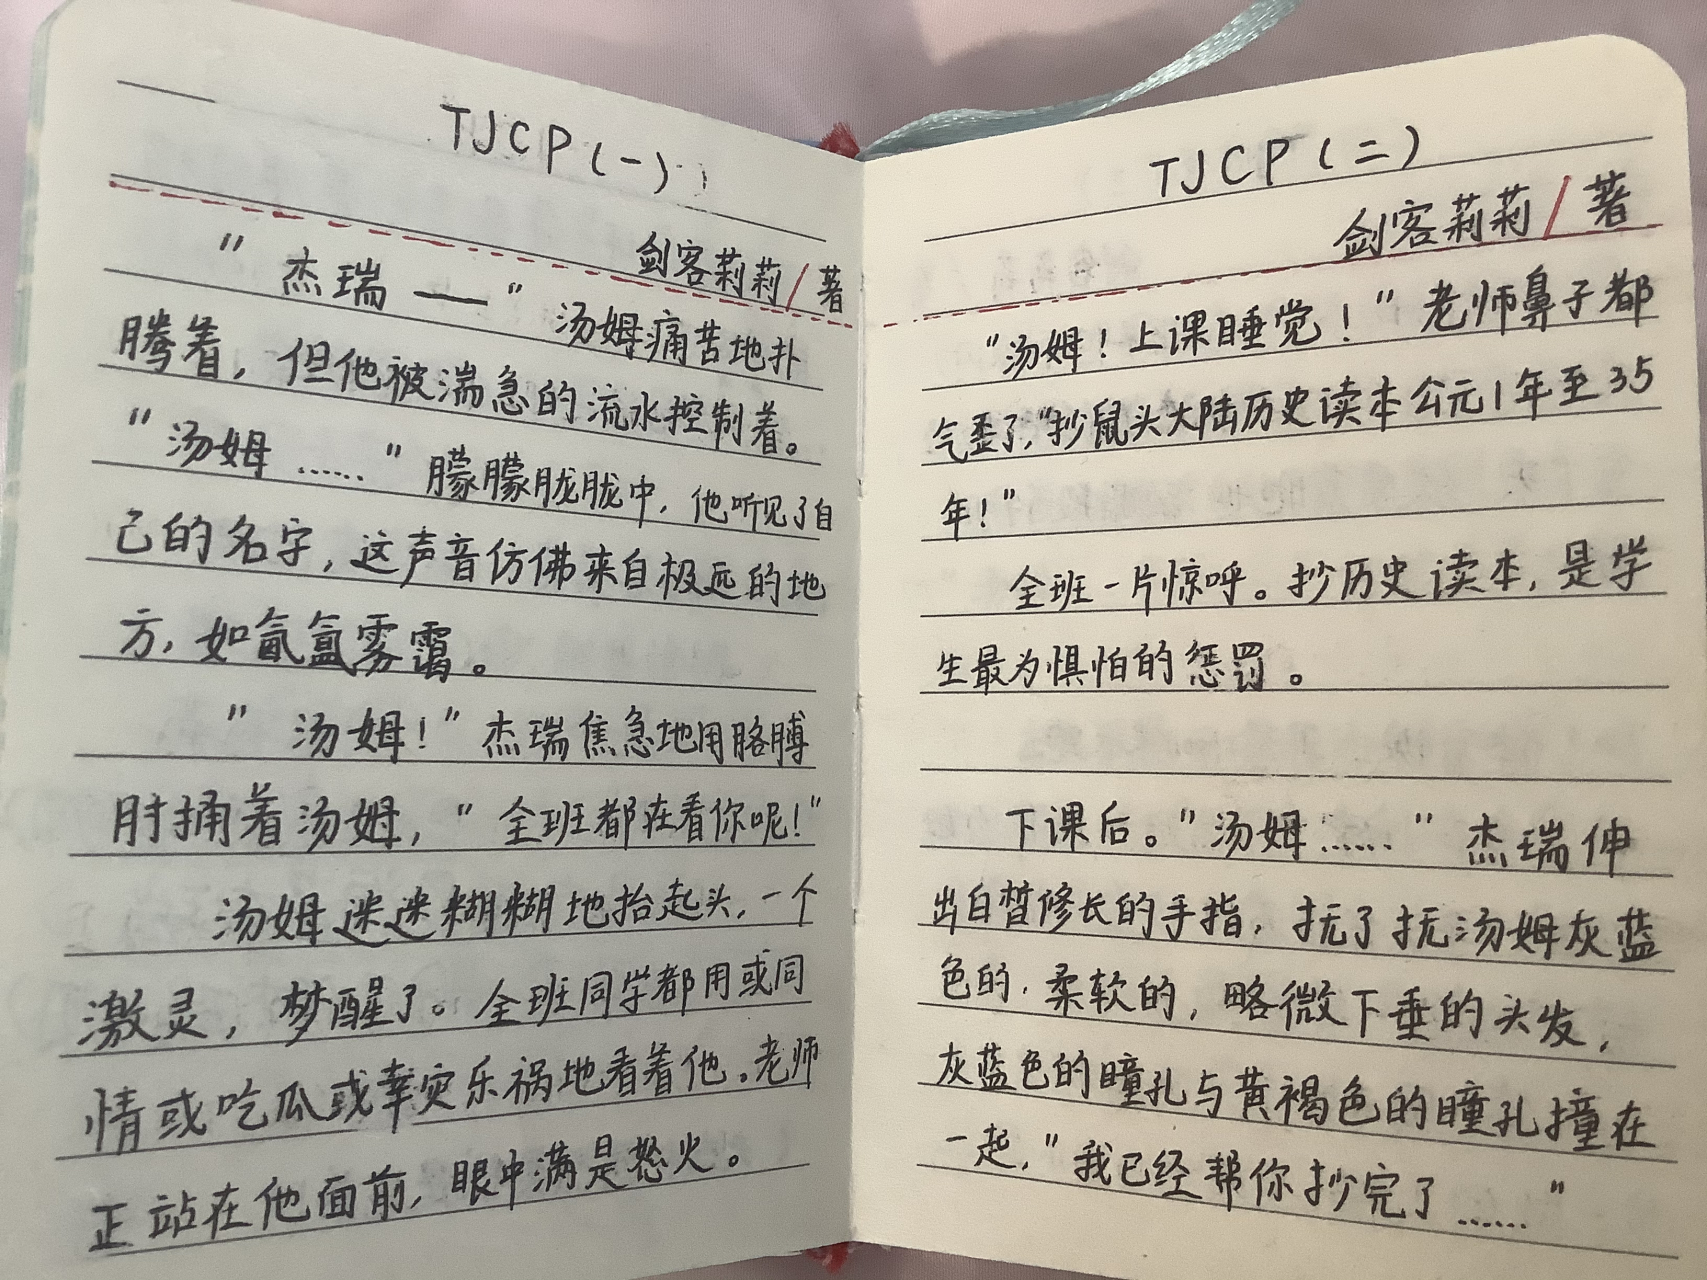 TJCP(一)
剑客莉莉/著
"杰瑞——"汤姆痛苦地扑
腾着，但他被湍急的流水控制着。
"汤姆……"朦朦胧胧中，他听见了自
己的名字，这声音仿佛来自极远的地
方，如氤氲雾霭。
"汤姆！"杰瑞焦急地用胳膊
肘捅着汤姆，"全班都在看你呢！"
汤姆迷迷糊糊地抬起头，一个
激灵，梦醒了。全班同学都用或同
情或吃瓜或幸灾乐祸地看着他。老师
正站在他面前，眼中满是怒火。
TJCP(二)
剑客莉莉/著
"汤姆！上课睡觉！"老师鼻子都
气歪了，"抄鼠头大陆历史读本公元1年至35
年！"
全班一片惊呼。抄历史读本，是学
生最为惧怕的惩罚。
下课后。"汤姆……"杰瑞伸
出白皙修长的手指，抚了抚汤姆灰蓝
色的，柔软的，略微下垂的头发，
灰蓝色的瞳孔与黄褐色的瞳孔撞在
一起，"我已经帮你抄完了……"